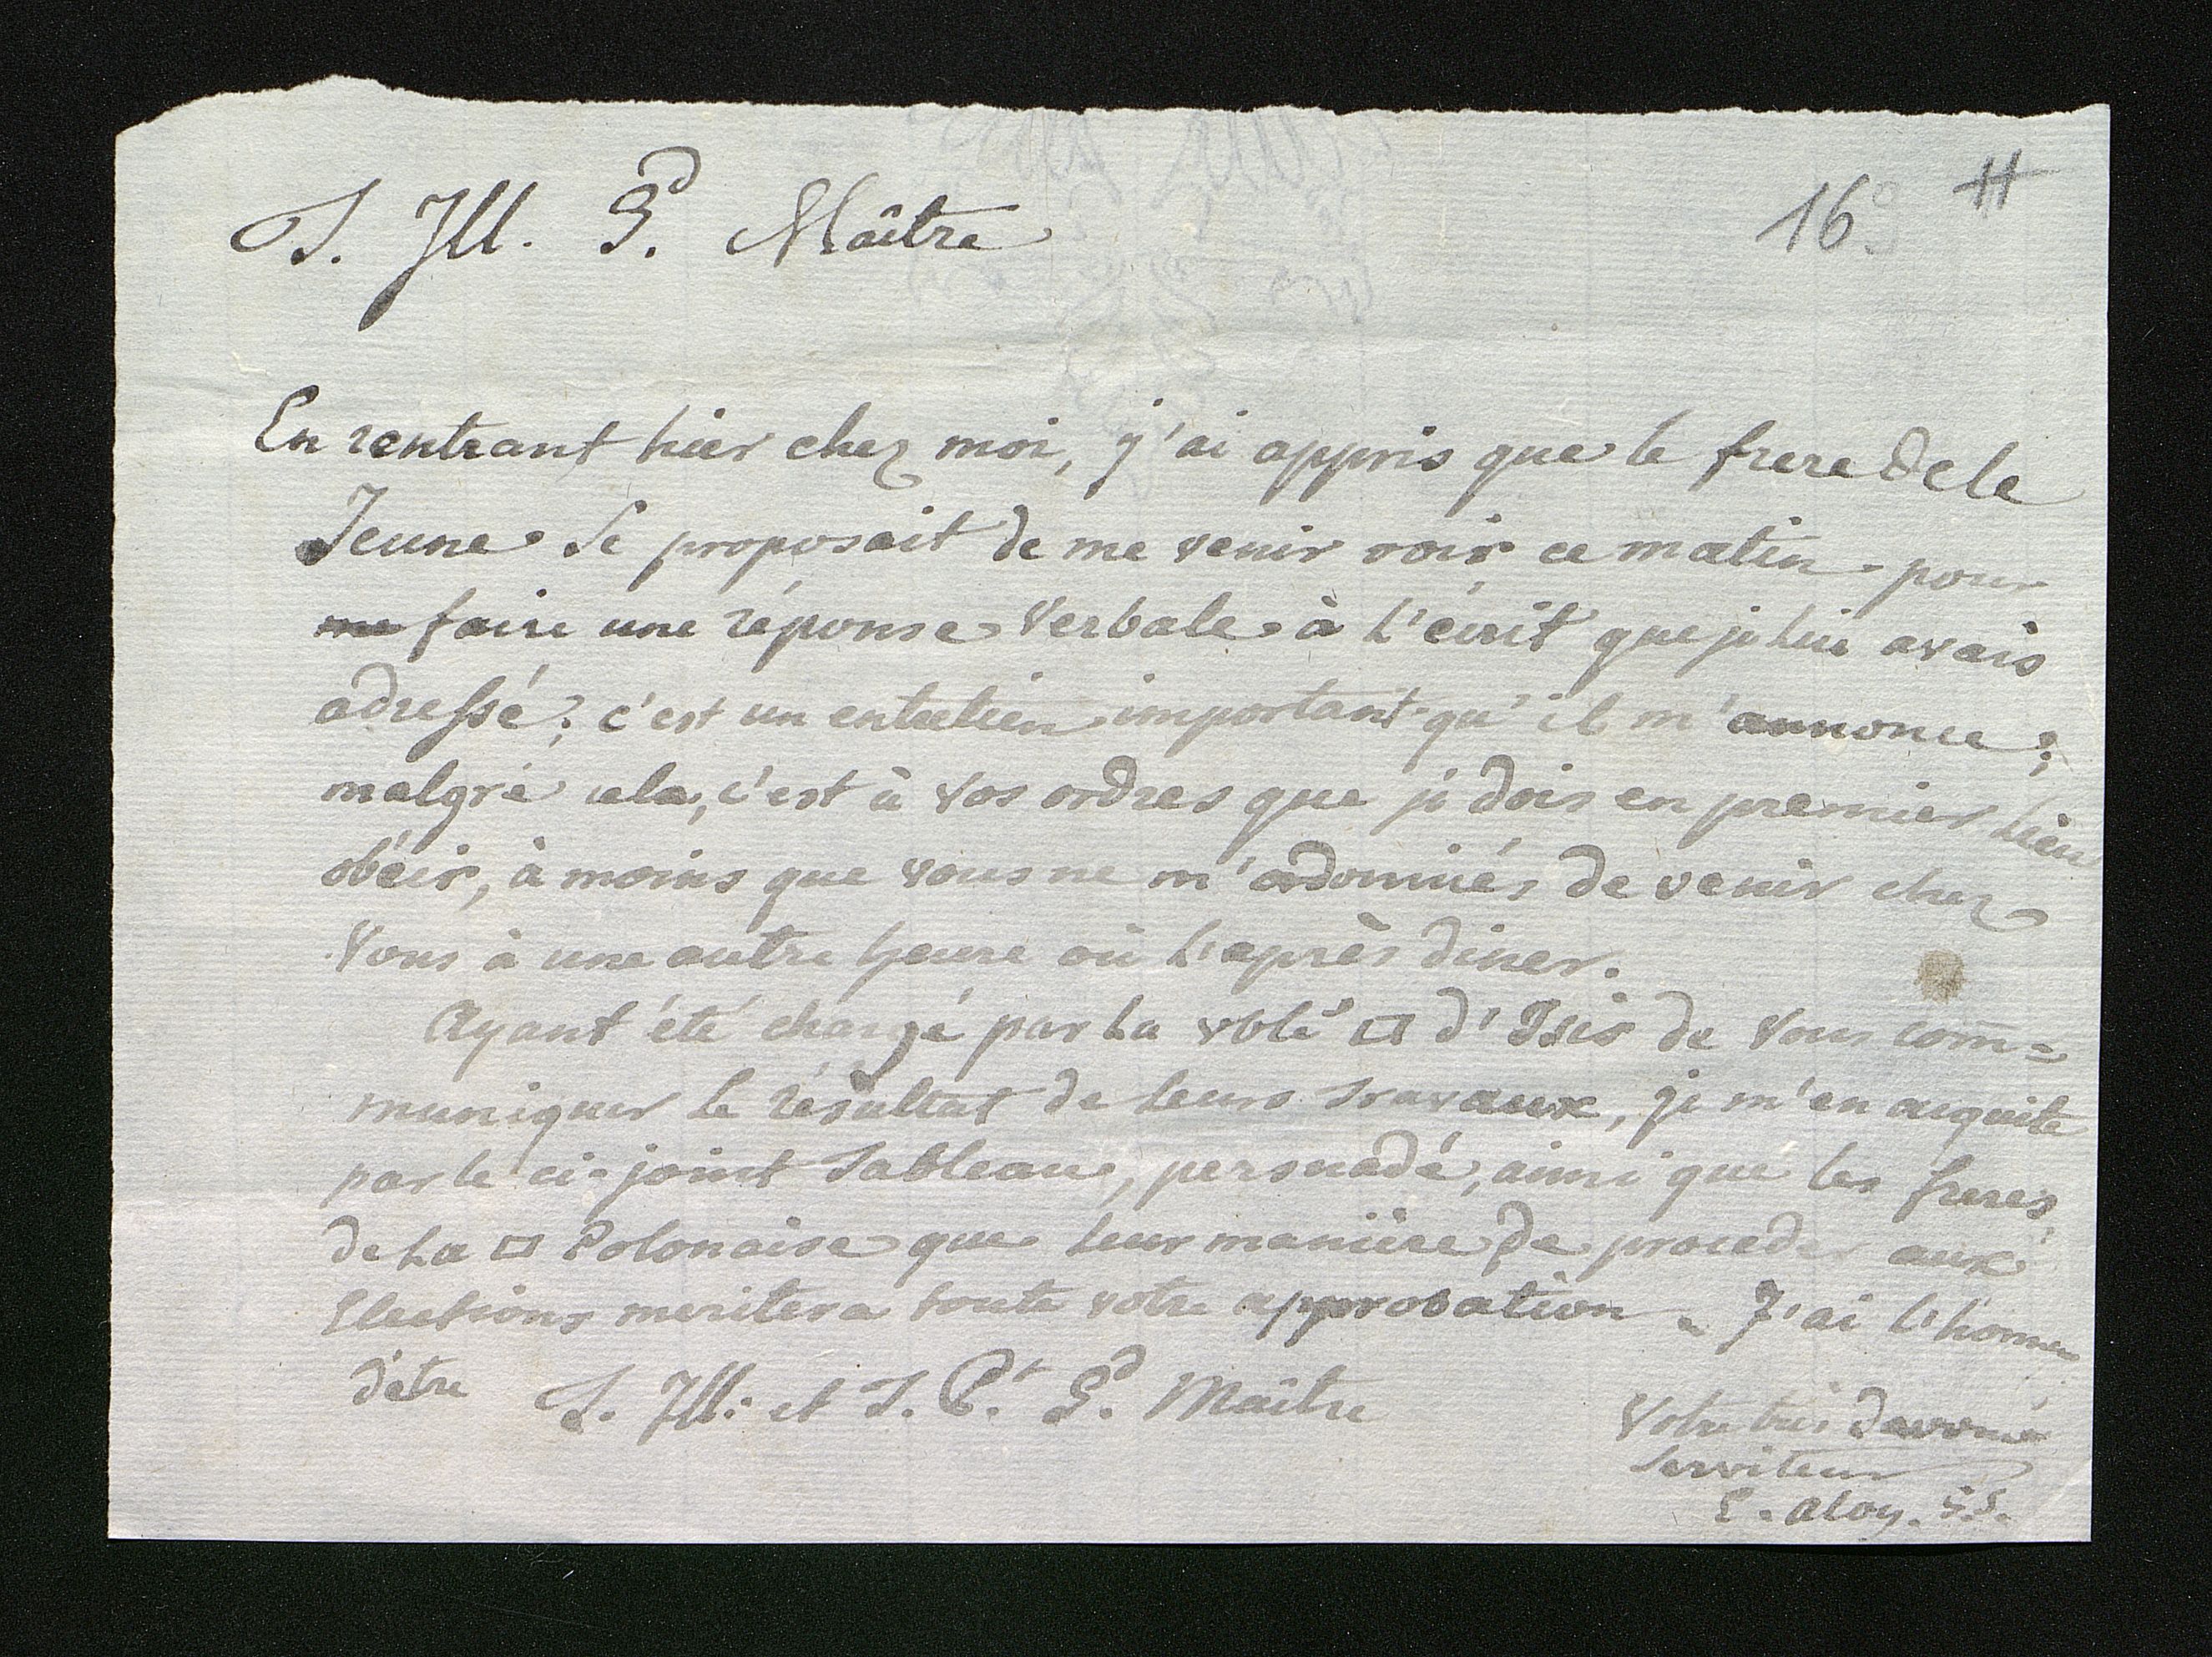 T. Ill. G.d Maître
16
En rentrant hier chez moi, j'ai appris que le frere De le
Jeune se proposait de me venir voir ce matin pour
me faire une réponse Verbale à l'écrit que je lui avais
adressé; c'est un entretien important qu'il m'annonce;
malgré cela, c'est à vos ordres que je dois en premier lieu
obéir, à moins que vous ne m'ordonniés de venir chez
Vous à une autre heure où l'après diner.
Ayant été chargé par la vble □ d'Isis de vous com=
muniquer le résultat de leurs travaux, je m'en acquite
par le ci-joint Tableau, persuadé, ainsi que les freres
de la □ Polonaise que leur manière de proceder aux
Elections meritera toute votre approbation. J'ai l'honneur
d'être T. Ill: et T. P.t G.d Maître
Votre très devoué
Serviteur